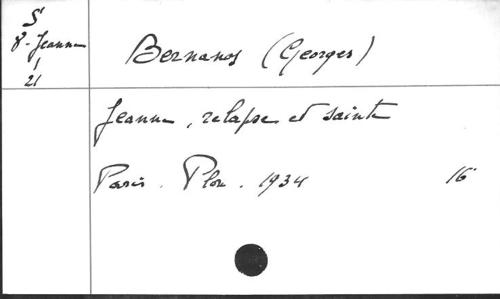 S'
8 - Jeanne
1
21
Bernanos (Georges)
Jeanne, relapse et sainte
Paris. Plon. 1934 16°